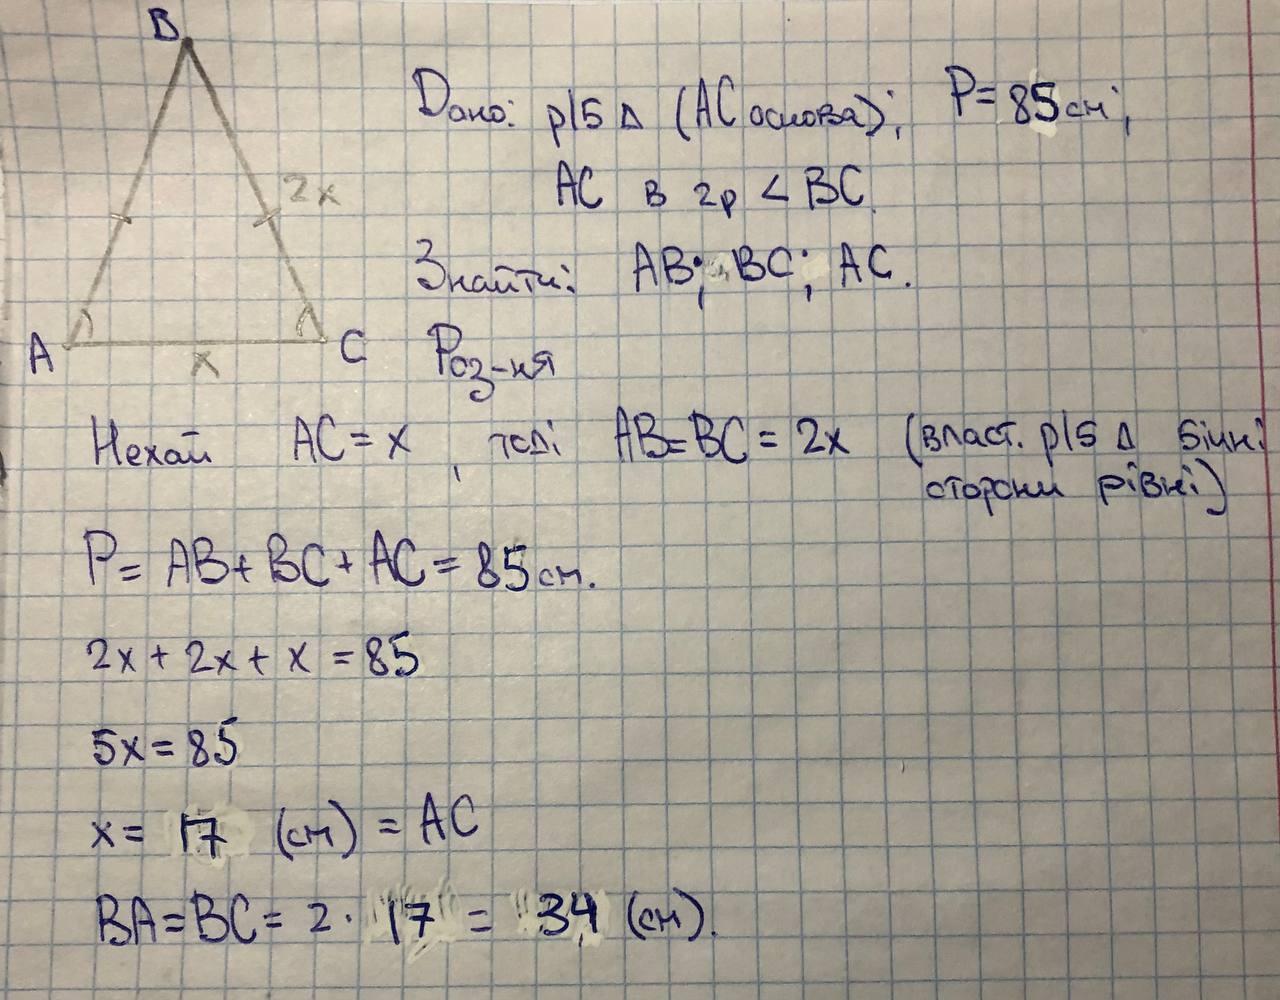 B
Дано: р/б Δ (AC основа); P = 85 см;
2x
AC в 2р < BC.
Знайти: AB; BC; AC.
A x C
Роз-ня
Нехай AC = x, тоді AB = BC = 2x (власт. р/б Δ бічні
сторони рівні)
P = AB + BC + AC = 85 см.
2x + 2x + x = 85
5x = 85
x = 17 (см) = AC
BA = BC = 2 · 17 = 34 (см).